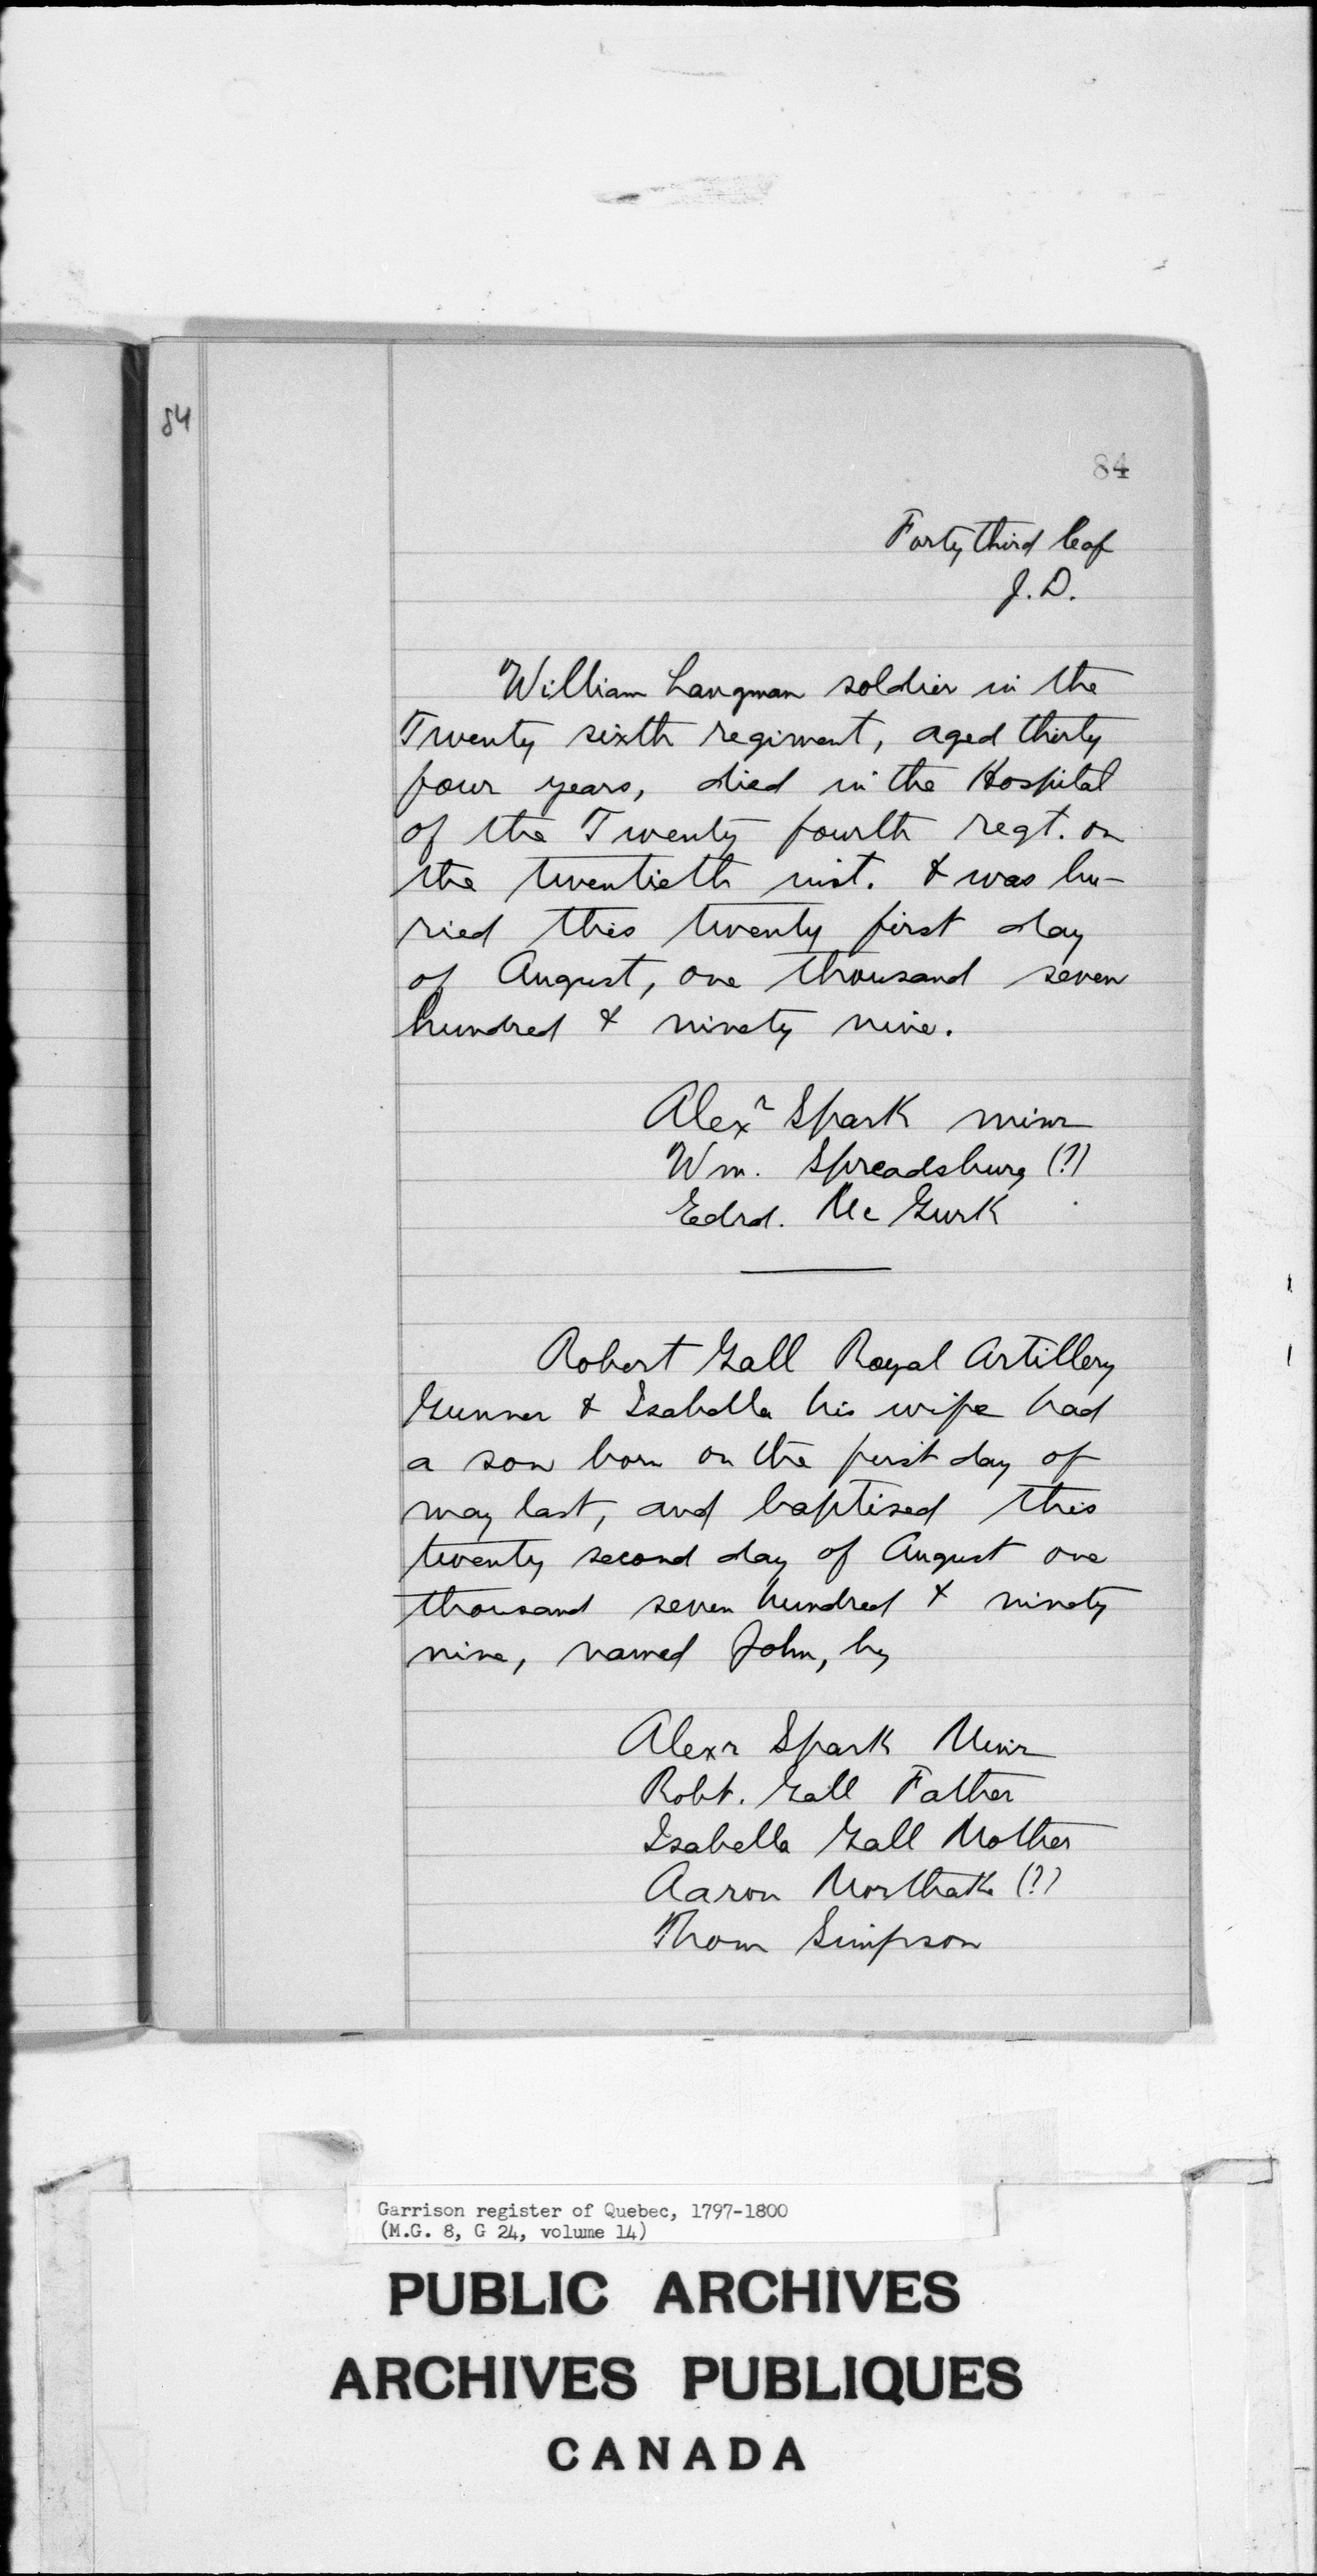 84
84
Forty third leaf
J.D.
William Langman soldier in the
Twenty sixth regiment, aged thirty
four years, died in the Hospital
of the Twenty fourth regt. on
the twentieth inst. & was bu-
ried this twenty first day
of August, one thousand seven
hundred & ninety nine.
Alexr Spark minr
Wm. Spreadsburg (?)
Edrd. Mc Gurk
Robert Gall Royal Artillery
Gunner & Isabella his wife had
a son born on the first day of
may last, and baptised this
twenty second day of August one
thousand seven hundred & ninety
nine, named John, by
Alexr Spark Minr
Robt. Gall Father
Isabella Gall Mother
Aaron (?)
Thom Simpson
Garrison register of Quebec, 1797-1800
(M.G. 8, G 24, volume 14)
PUBLIC ARCHIVES
ARCHIVES PUBLIQUES
CANADA